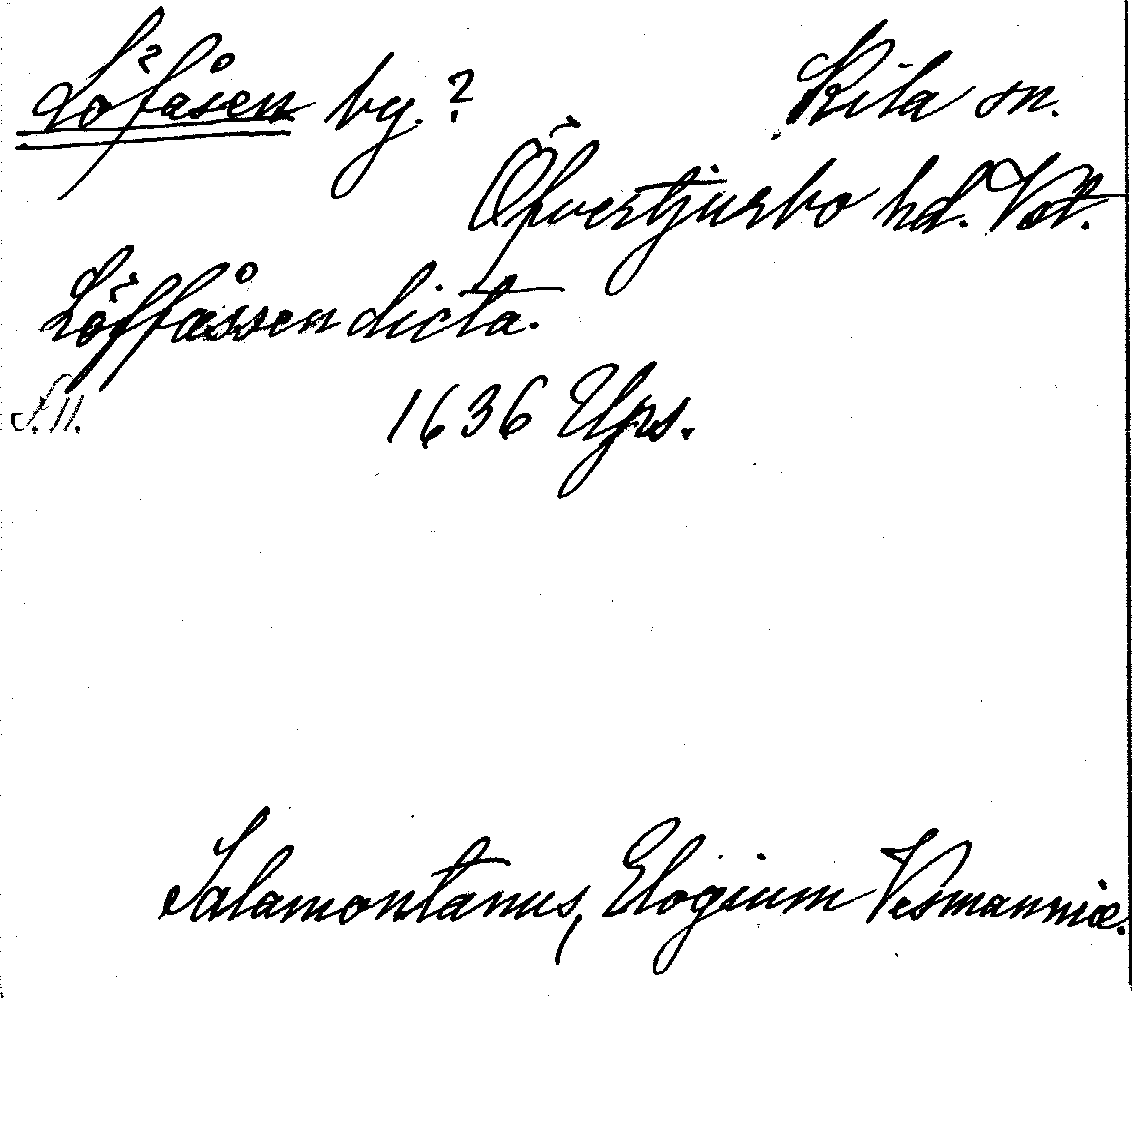 Löfåsen by.? Kila sn.
Öfvertjurbo hd. Vstl.
Löffåssen dicta.
S. 11. 1636 Ups.
Salamontanus, Elogium Vesmanniæ.